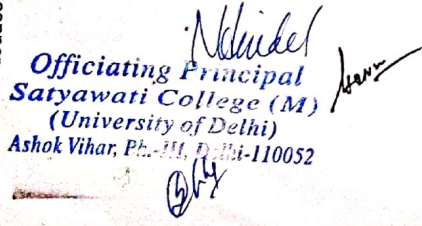 Officiating Principal
Satyawati College (M)
(University of Delhi)
Ashok Vihar, Ph.-III, Delhi-110052